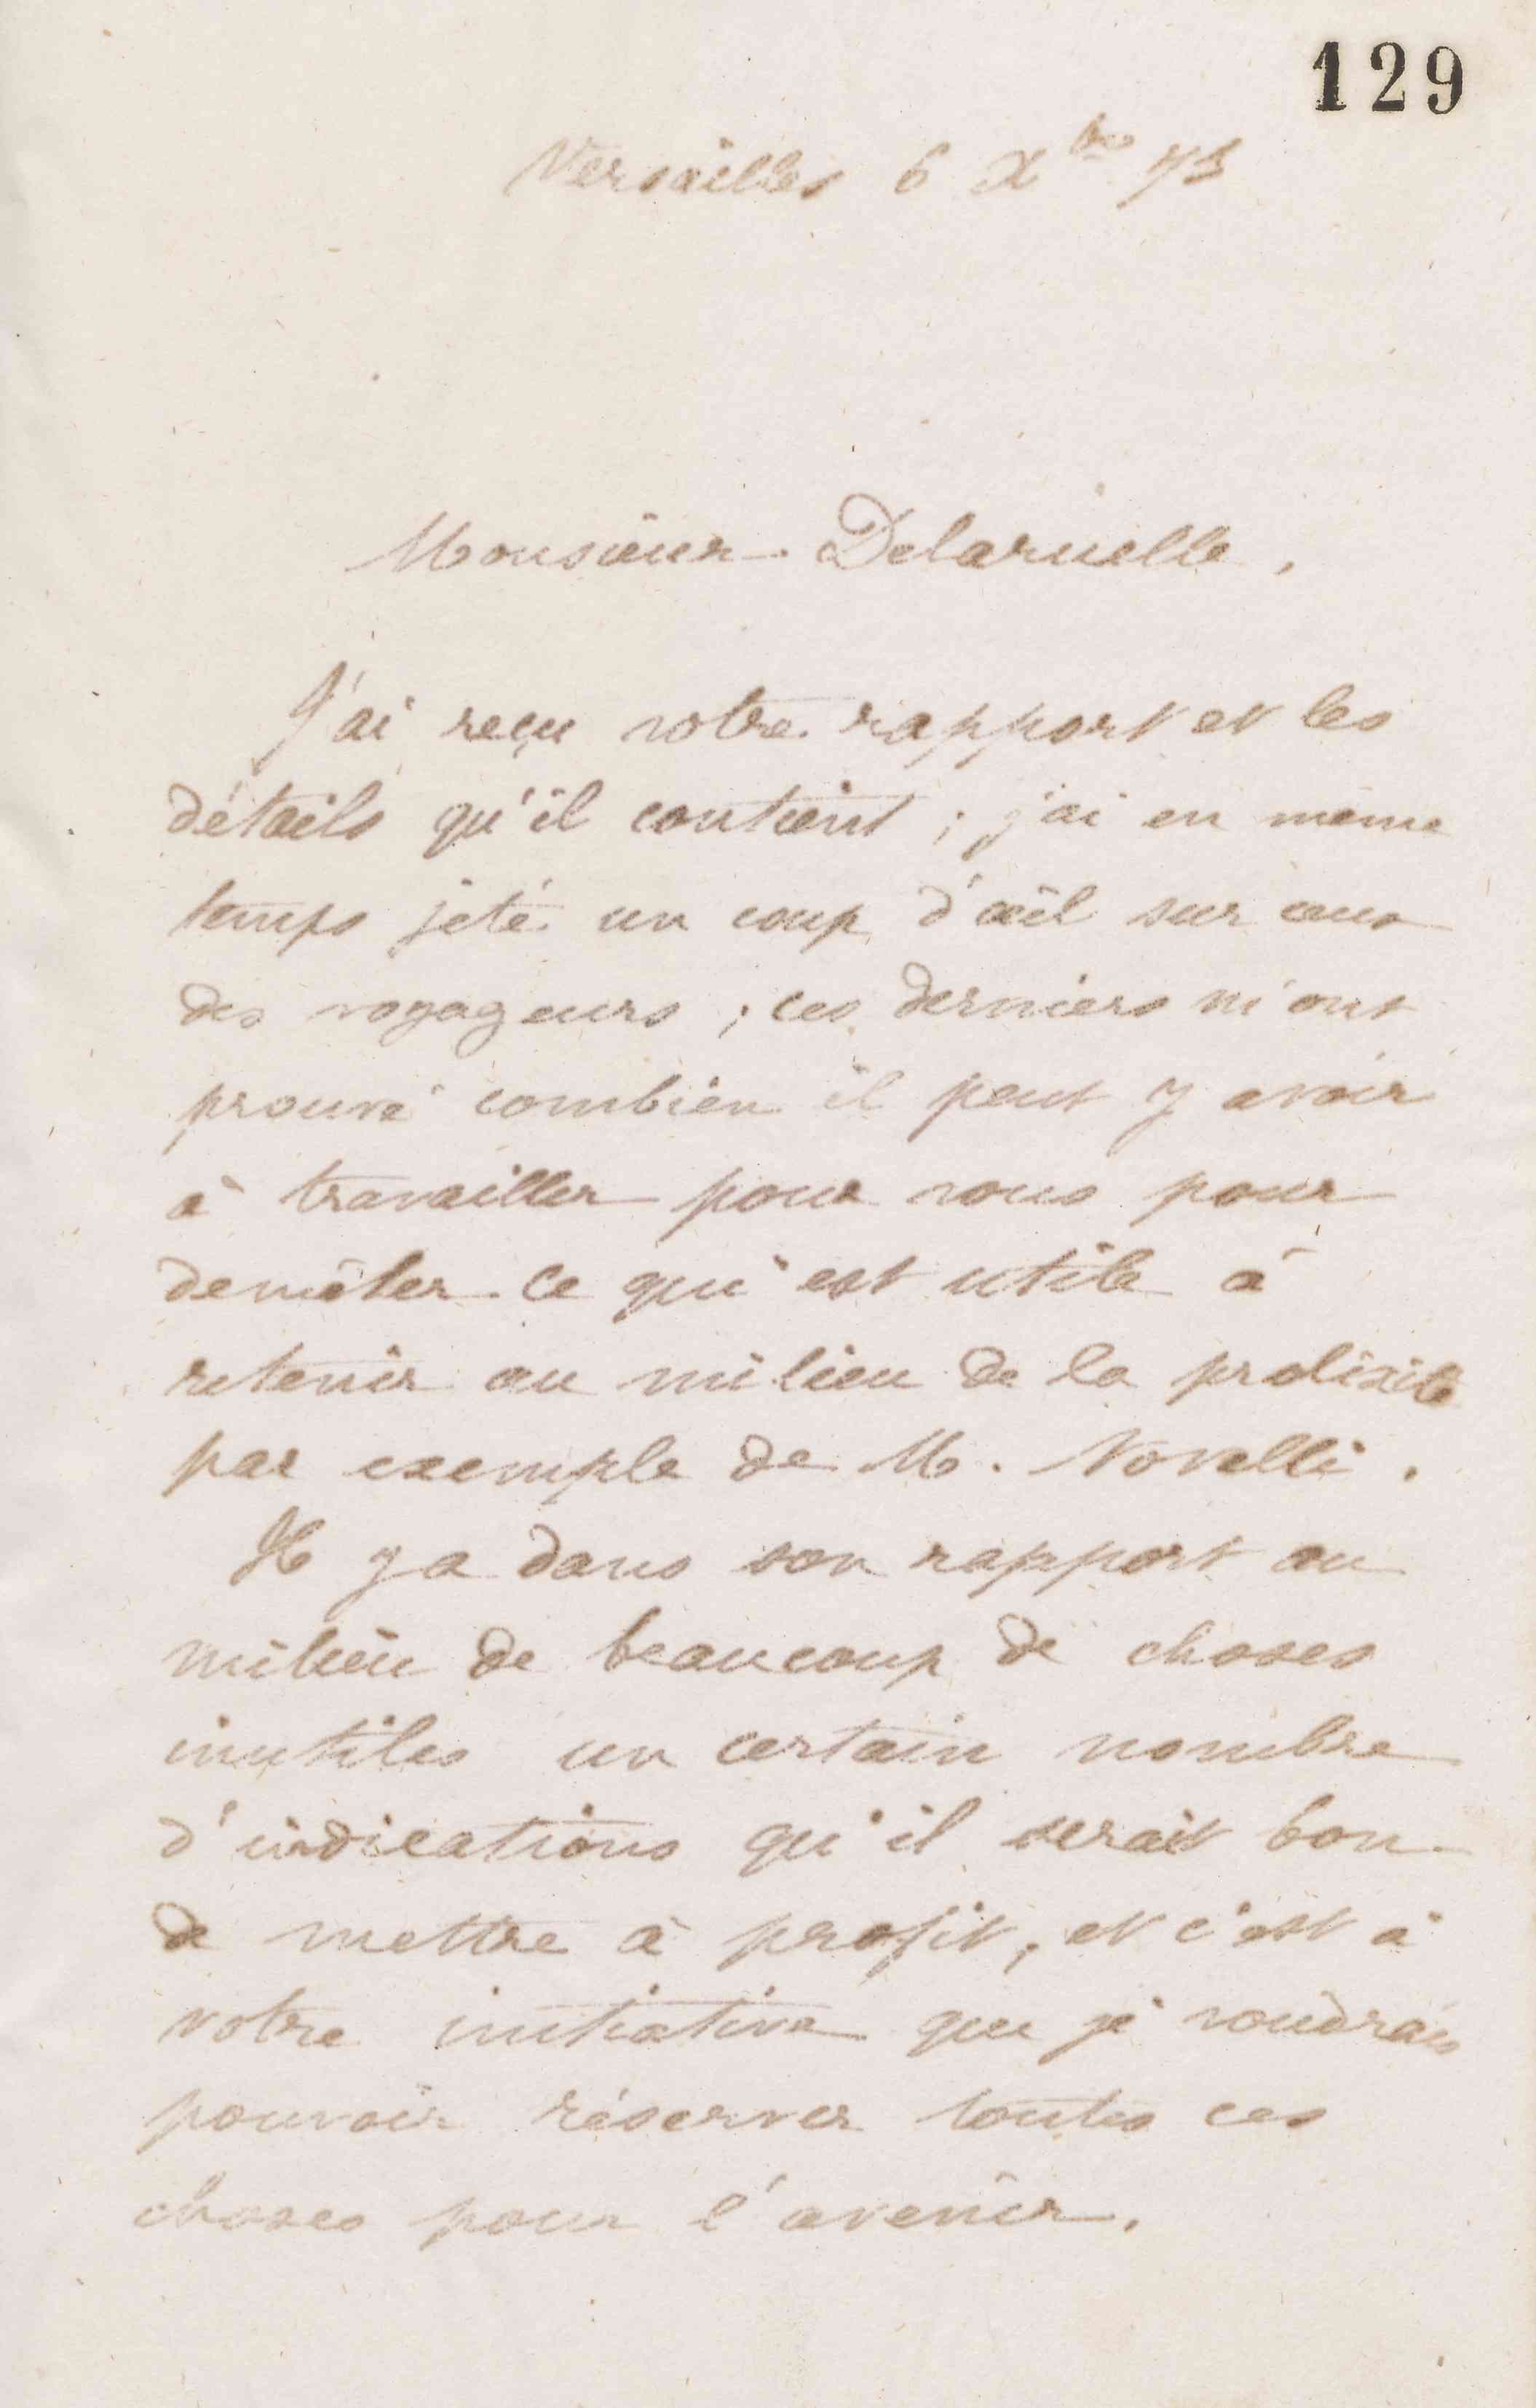 129
Versailles 6 Xbre 73
Monsieur Delaruelle,
J'ai reçu votre rapport et les
détails qu'il contient ; j'ai en même
temps jeté un coup d'œil sur ceux
des voyageurs ; ces derniers m'ont
prouvé combien il peut y avoir
à travailler pour vous pour
demêler ce qui est utile à
retenir au milieu de la prolixité
par exemple de M. Novelli.
Il y a dans son rapport au
milieu de beaucoup de choses
inutiles un certain nombre
d'indications qu'il serait bon
de mettre à profit, et c'est à
votre initiative que je voudrais
pouvoir réserver toutes ces
choses pour l'avenir.